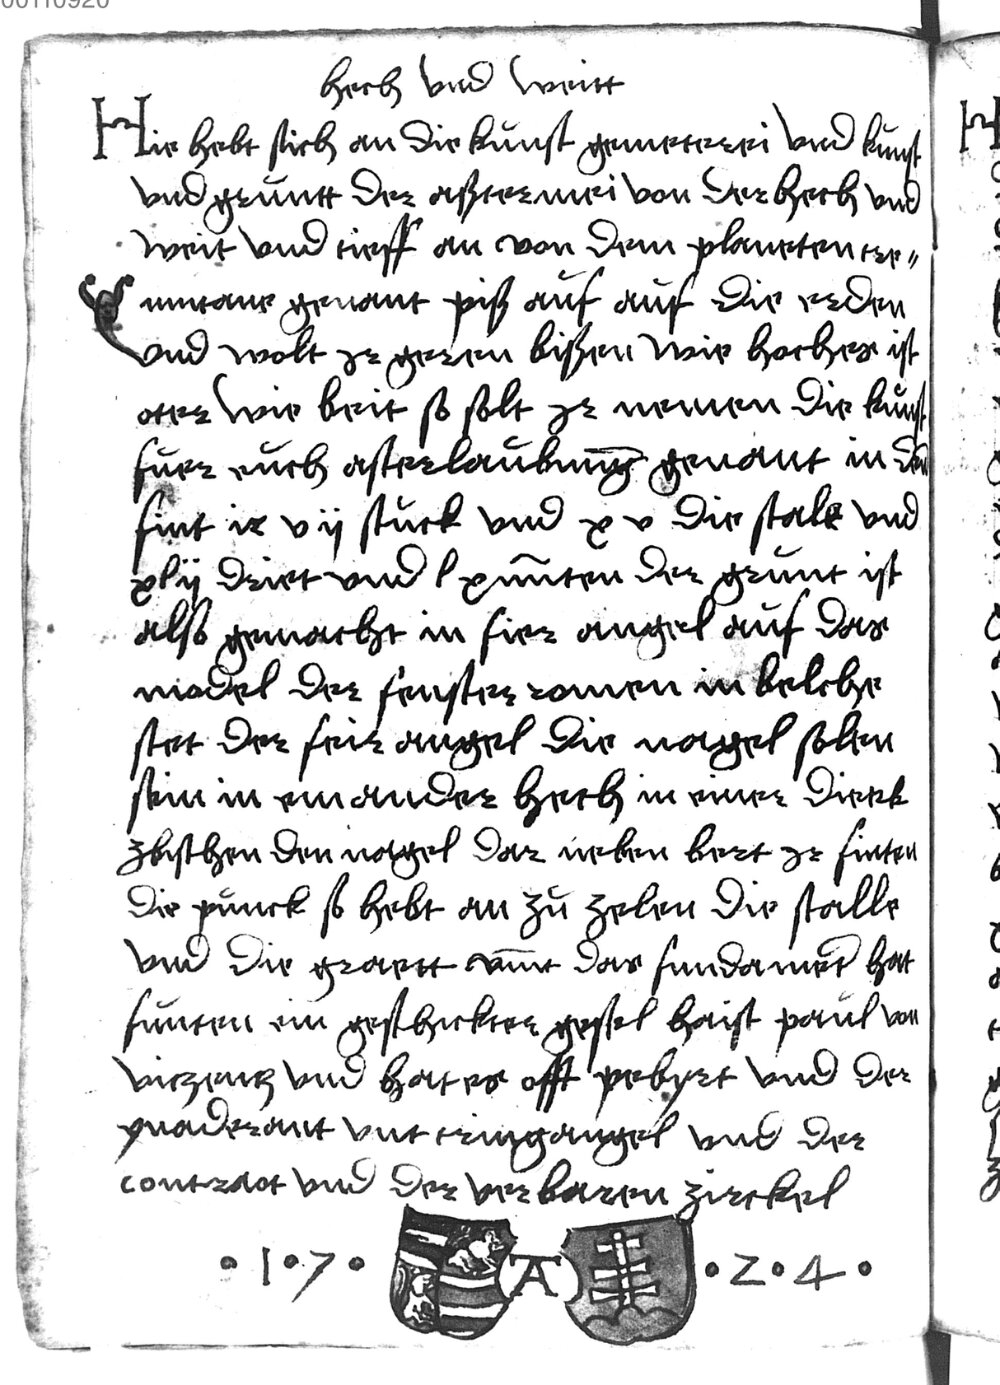 00110920
hech vnd weitt
Hie hebt sich an die kunst gemeterei vnd kunst
vnd gruntt der aßtermei von der hech vnd
weit vnd tieff an von dem planeten tre„
muntane genant piß auf auf die erden
vnd wolt ir geren bißen wie hoches ist
oter wie beit so solt ir nemen die kunst
fuer euch asterlaubung genant in den
sint ix vij stuck vnd xv die stale vnd
xlij driet vnd l der grunt ist
alß gemacht in fier angel auf das
model der fenster romen in belche
stet der feir angel die nagel solen
sein in einander hech in einer dieck
zbischen den nagel dar neben bert ir finten
die punck so hebt an zu zelen die stalle
vnd die graett das fundament hat
funten ein geschickter gesel haist paul von
vnd hat es offt pebyrt vnd der
quaderant vnt tringangel vnd der
contract vnd der verbaren zirckel
•1•7• A •2•4•